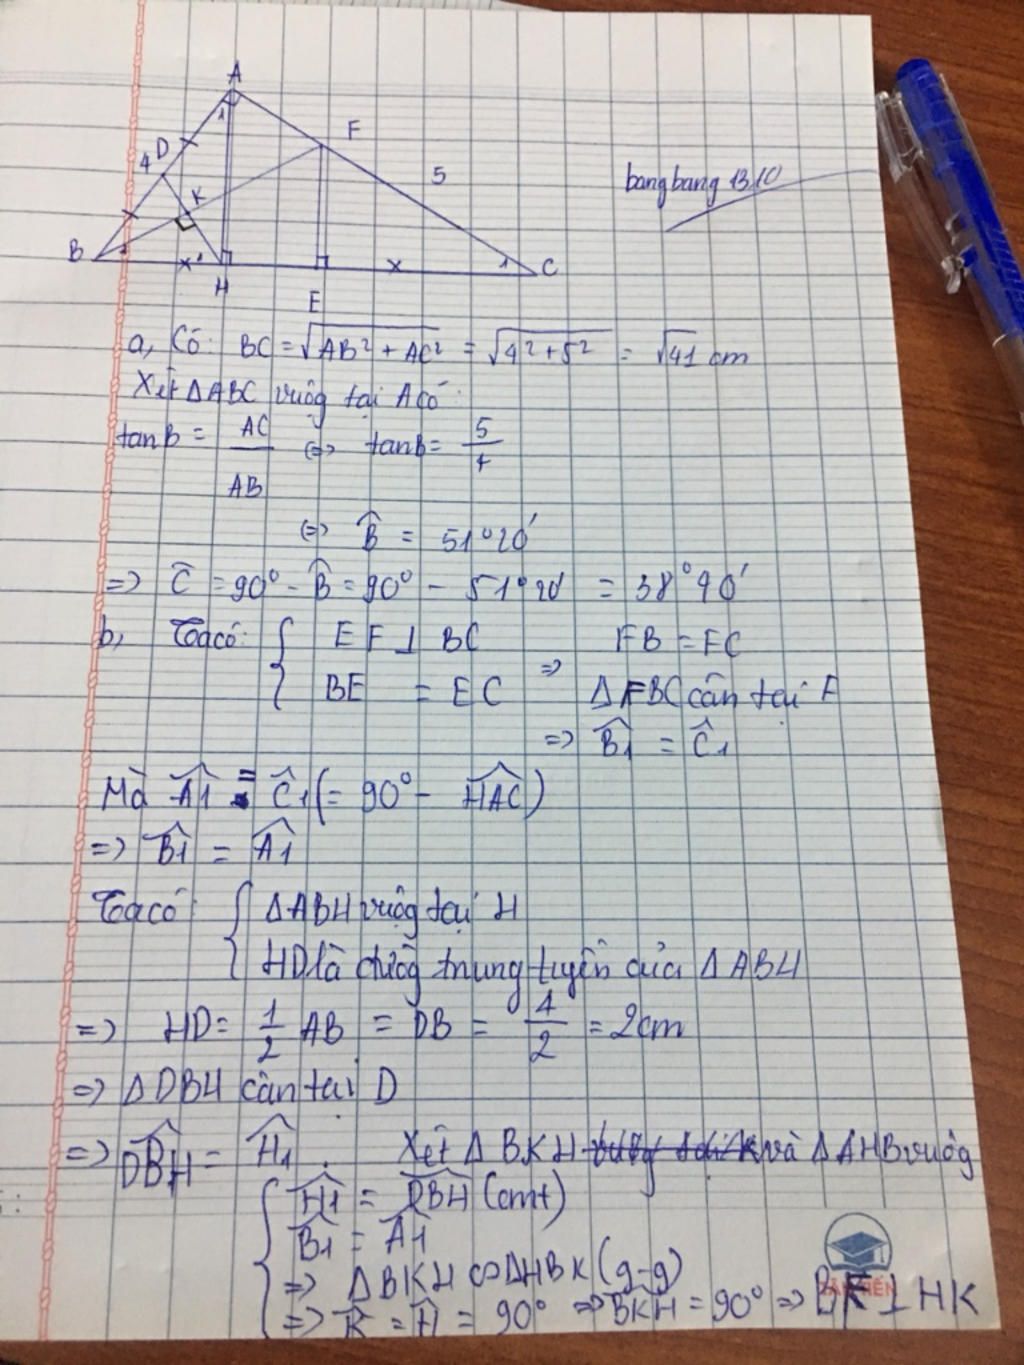 A
F
1
D
4
5
bangbang 1310
K
B
1
x
x
1
C
H
E
a, Có: BC = √AB² + AC² = √4² + 5² = √41 cm
Xét ΔABC vuông tại A có:
tanB = AC/AB <=> tanB = 5/4
<=> B̂ = 51°20'
=> Ĉ = 90° - B̂ = 90° - 51°20' = 38°40'
b, Ta có: { EF ⊥ BC FB = FC
BE = EC => ΔFBC cân tại F
=> B̂1 = Ĉ1
Mà Â1 = Ĉ1 (= 90° - HAC)
=> B̂1 = Â1
Ta có: { ΔABH vuông tại H
HD là đường trung tuyến của ΔABH
=> HD = 1/2 AB = DB = 4/2 = 2cm
=> ΔDBH cân tại D
=> DBH = Ĥ1. Xét ΔBKH và ΔAHB vuông
{ Ĥ1 = DBH (cmt)
B̂1 = Â1
=> ΔBKH ∽ ΔHBK (g-g)
=> K̂ = Ĥ = 90° => BKH = 90° => BF ⊥ HK